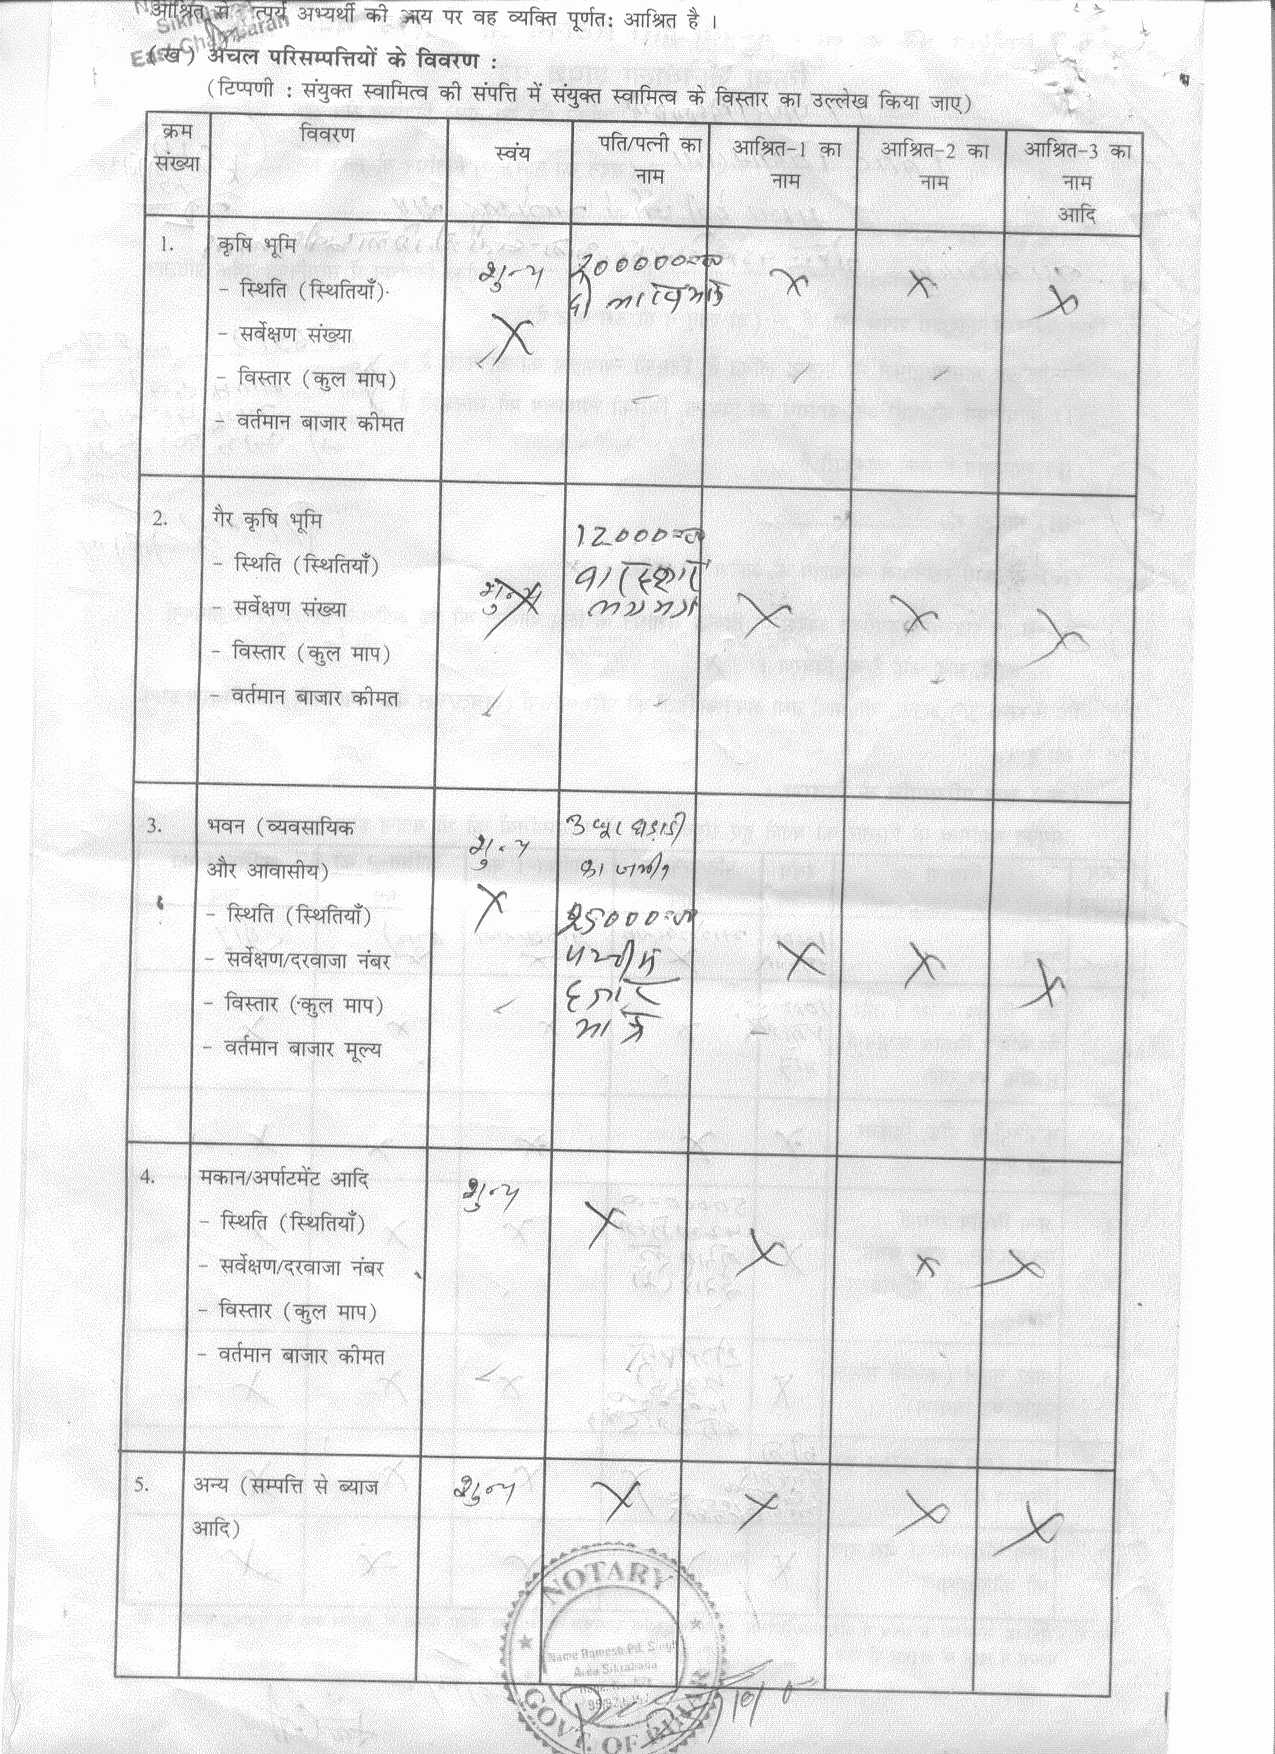 आश्रित से तात्पर्य अभ्यर्थी की आय पर वह व्यक्ति पूर्णत: आश्रित है ।
(ख) अचल परिसम्पत्तियों के विवरण :
(टिप्पणी : संयुक्त स्वामित्व की संपत्ति में संयुक्त स्वामित्व के विस्तार का उल्लेख किया जाए)
क्रम संख्या
विवरण
स्वंय
पति/पत्नी का नाम
आश्रित-1 का नाम
आश्रित-2 का नाम
आश्रित-3 का नाम आदि
1.
कृषि भूमि
- स्थिति (स्थितियाँ)
- सर्वेक्षण संख्या
- विस्तार (कुल माप)
- वर्तमान बाजार कीमत
शुन्य
2.
गैर कृषि भूमि
- स्थिति (स्थितियाँ)
- सर्वेक्षण संख्या
- विस्तार (कुल माप)
- वर्तमान बाजार कीमत
शुन्य
12000=00
3.
भवन (व्यवसायिक
और आवासीय)
- स्थिति (स्थितियाँ)
- सर्वेक्षण/दरवाजा नंबर
- विस्तार (कुल माप)
- वर्तमान बाजार मूल्य
शुन्य
का जमीन
25000=00
4.
मकान/अर्पाटमेंट आदि
- स्थिति (स्थितियाँ)
- सर्वेक्षण/दरवाजा नंबर
- विस्तार (कुल माप)
- वर्तमान बाजार कीमत
शुन्य
5.
अन्य (सम्पत्ति से ब्याज
आदि)
शुन्य
NOTARY
Name Ramesh Pd. Singh
Area Sikrahana
GOVT. OF BIHAR